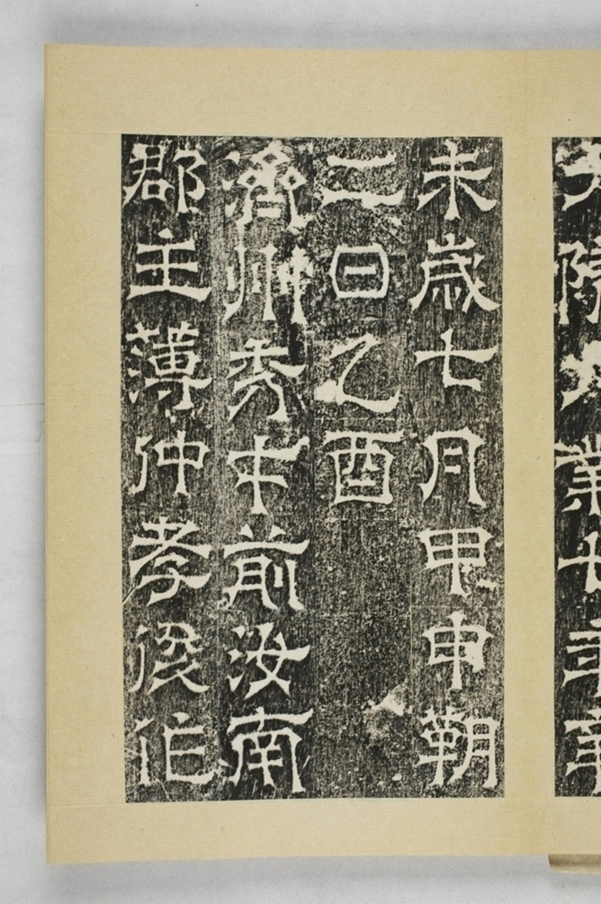 未歲七月甲申朔
二日乙酉
濟州秀才前汝南
郡主薄仲孝俊作